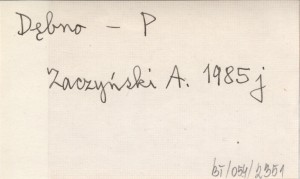 Dębno - P
Zaczyński A. 1985 j
BT/054/2351